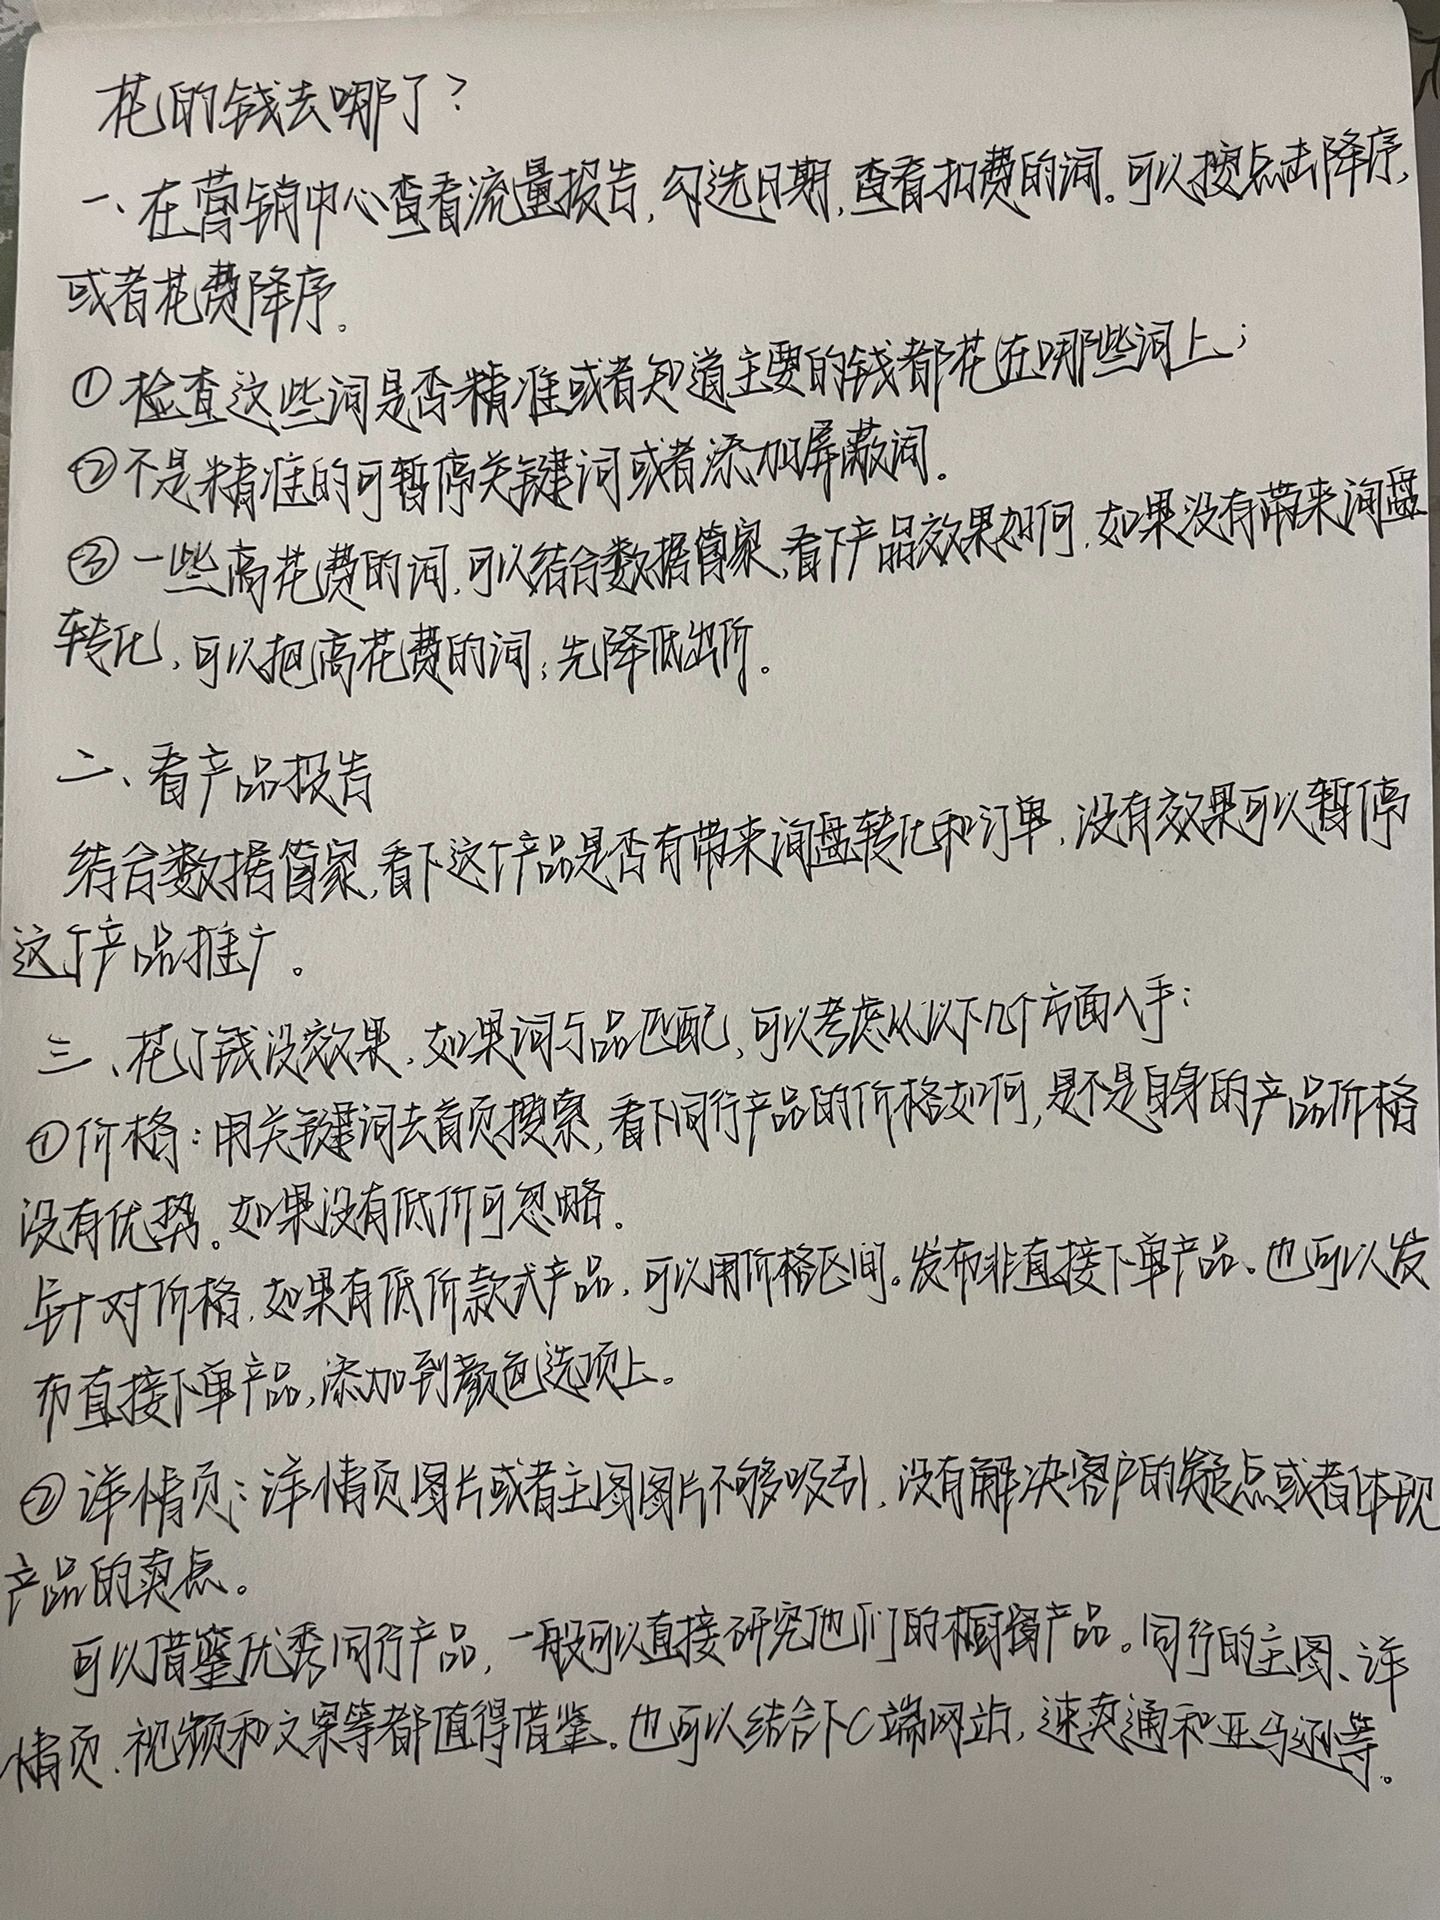 花的钱去哪了?
一、在营销中心查看流量报告,勾选日期,查看扣费的词。可以按点击降序,
或者花费降序。
①检查这些词是否精准或者知道主要的钱都花在哪些词上;
②不是精准的可暂停关键词或者添加屏蔽词。
③一些高花费的词,可以结合数据管家,看下产品效果如何,如果没有带来询盘
转化,可以把高花费的词,先降低出价。
二、看产品报告
结合数据管家,看下这个产品是否有带来询盘转化和订单,没有效果可以暂停
这个产品推广。
三、花了钱没效果,如果词与品匹配,可以考虑从以下几个方面入手:
①价格:用关键词去首页搜索,看下同行产品的价格如何,是不是自身的产品价格
没有优势。如果没有低价可忽略。
针对价格,如果有低价款式产品,可以用价格区间。发布非直接下单产品。也可以发
布直接下单产品,添加到颜色选项上。
②详情页:详情页图片或者主图图片不够吸引,没有解决客户的疑点或者体现
产品的卖点。
可以借鉴优秀同行产品,一般可以直接研究他们的橱窗产品。同行的主图、详
情页、视频和文案等都值得借鉴。也可以结合下C端网站,速卖通和亚马逊等。